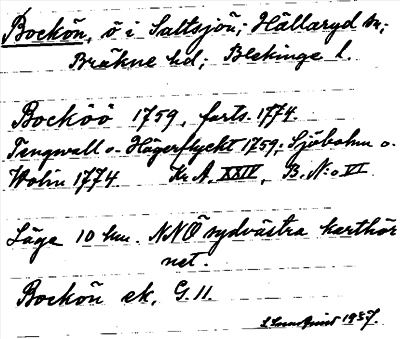 Bockön, ö i Saltsjön; Hällaryd sn;
Bräkne hd; Blekinge l.
Bocköö 1759, forts. 1774.
Tengwall o. Hägerflyckt 1759; Sjöbohm o.
Wolin 1774 Kr.A. XXIV, B. N:o VI
Läge 10 km. NNÖ sydvästra karthör
net.
Bockön ek. G. 11.
1937.